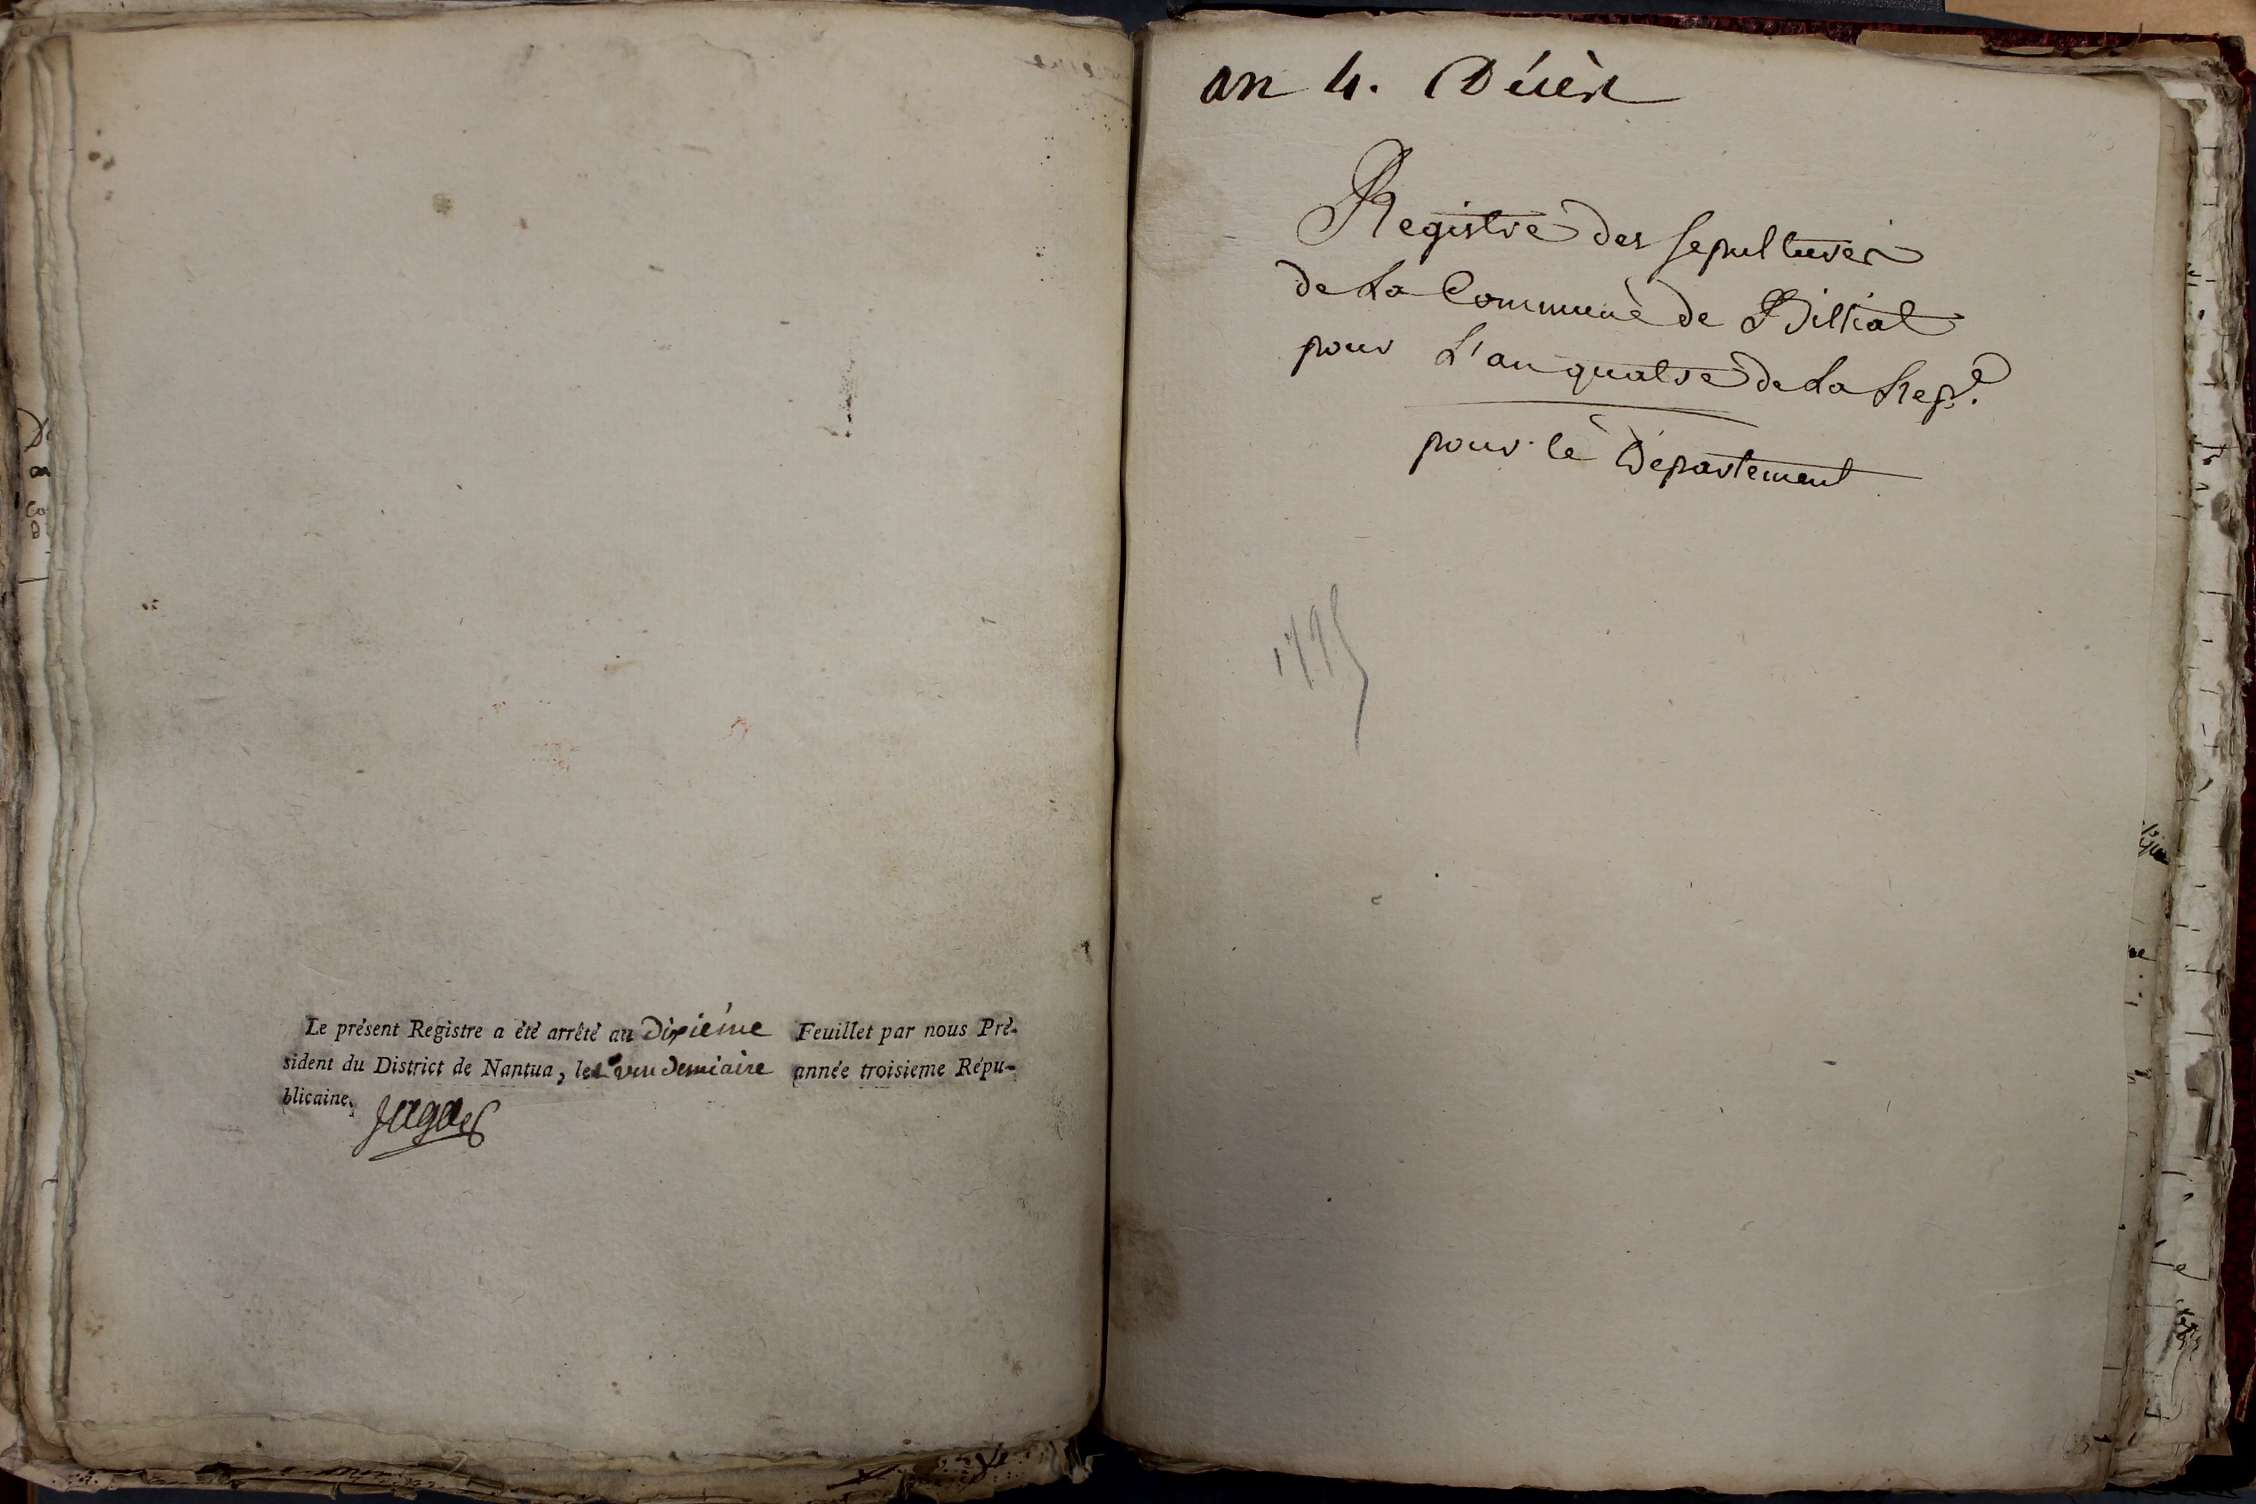 Le présent Registre a été arrêté au Dixiéme Feuillet par nous Pré-
sident du District de Nantua, le 1er vendemiaire année troisieme Répu-
blicaine.
an 4. Décès
Registre des sepultures
de La Commune de Billiat
pour L'an quatre de La Rep.e
pour le Département
1795